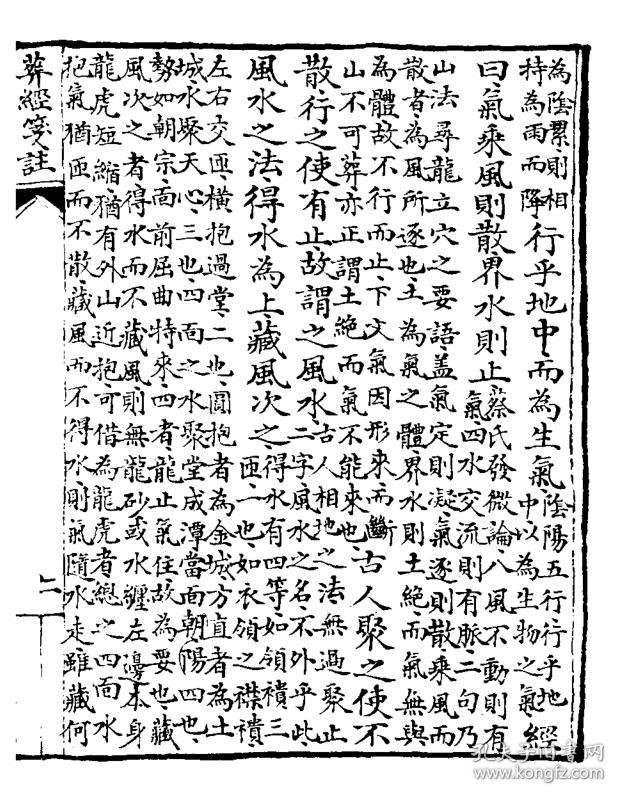 為陰累則相
持為雨而降
行乎地中而為生氣
陰陽五行行乎地
中以為生物之氣
經
曰氣乘風則散界水則止
蔡氏發微論八風不動則有
氣四水交流則有脈二句乃
山法尋龍立穴之要語蓋氣定則凝氣逐則散乘風而
散者為風所逐也土為氣之體界水則土絕而氣無與
為體故不行而止下文氣因形來而斷
山不可葬亦正謂土絕而氣不能來也
古人聚之使不
散行之使有止故謂之風水
古人相地之法無過聚止
二字風水之名不外乎此
風水之法得水為上藏風次之
得水有四等如領襀三
匝一也如衣領之襟襀
左右交匝橫抱過堂二也圓抱者為金城方直者為土
城水聚天心三也四面之水聚堂成潭當面朝陽四也
勢如朝宗面前屈曲特來四者龍止氣住故為要也藏
風次之者得水而不藏風則無龍砂或水纏左邊本身
龍虎短縮猶有外山近抱可借為龍虎者總之四面水
抱氣猶匝而不散藏風而不得水則氣隨水走雖藏何
葬經箋註
二
孔夫子旧书网
www.kongfz.com